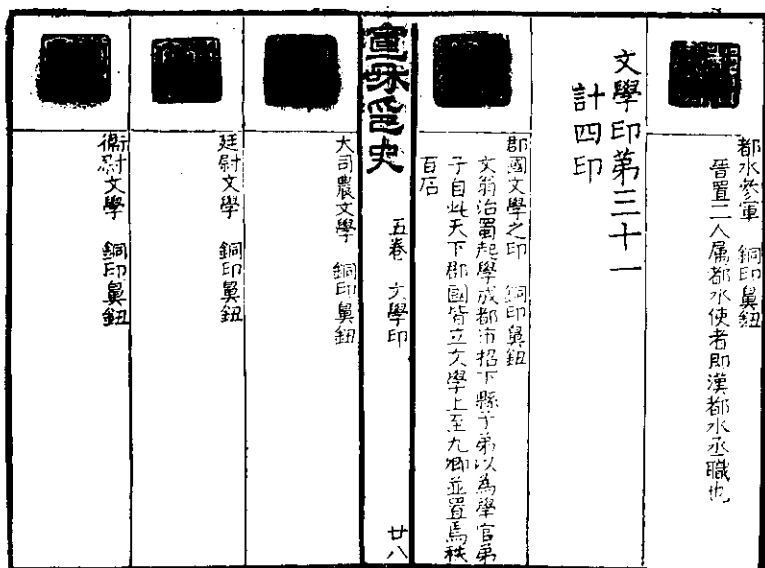 都水參軍　銅印鼻鈕
晉置二人属都水使者即漢都水丞職也
文學印第三十一
計四印
郡國文學之印　銅印鼻鈕
文翁治蜀起學成都市招下縣子弟以為學官弟
子自此天下郡國皆立文學上至九卿並置焉秩
百石
宣和印史
五卷　文學印
廿八
大司農文學　銅印鼻鈕
廷尉文學　銅印鼻鈕
衞尉文學　銅印鼻鈕